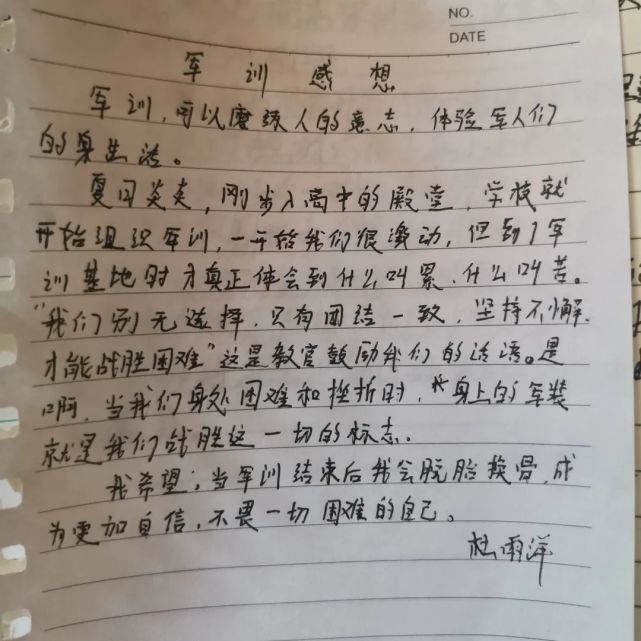 NO.
DATE
军训感想
军训，可以磨练人的意志，体验军人们
的生活。
夏日炎炎，刚步入高中的殿堂，学校就
开始组织军训，一开始我们很激动，但到了军
训基地时才真正体会到什么叫累，什么叫苦。
“我们别无选择，只有团结一致，坚持不懈，
才能战胜困难”这是教官鼓励我们的话语。是
啊，当我们身处困难和挫折时，身上的军装
就是我们战胜这一切的标志。
我希望：当军训结束后我会脱胎换骨，成
为更加自信，不畏一切困难的自己。
杜雨洋